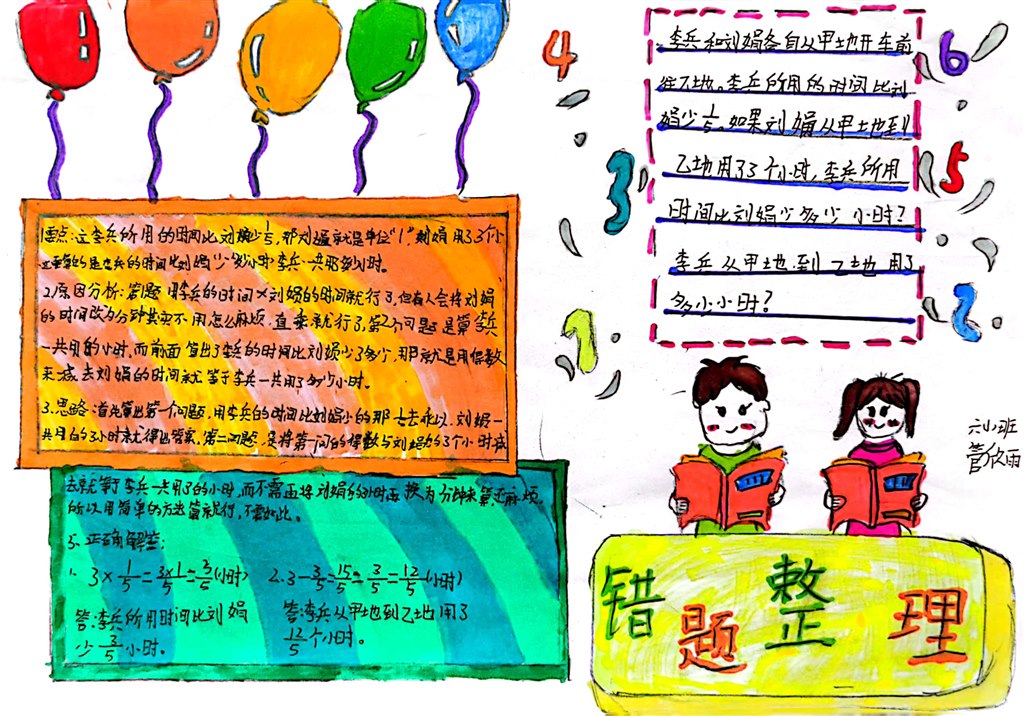 4
6
3
5
1
2
李兵和刘娟各自从甲地开车前
往乙地。李兵所用的时间比刘
娟少1/5。如果刘娟从甲地到
乙地用了3个小时,李兵所用
时间比刘娟少多少小时?
李兵从甲地到乙地用了
多少小时?
所用的时间比刘娟少1/5,那刘娟就是单位“1”刘娟用了3个小
李兵的时间比刘娟少多少小时李兵一共用多少小时。
2.原因分析:答题用李兵的时间×刘娟的时间就行了,但有人会将刘娟
的时间改为分钟其实不用怎么麻烦,直乘就行了,第2个问题是算李兵
一共用的小时,而前面算出了李兵的时间比刘娟少了多少,那就是用得数
来减去刘娟的时间就等于李兵一共用了多少小时。
3.思路:首先算出第一个问题,用李兵的时间比刘娟少的那去乘以刘娟一
共用的3小时就得出答案。第二问题,是将第一问的得数与刘娟的3个小时减
去就等于李兵一共用了的小时,而不需要将刘娟的小时再换为分钟来算,麻烦。
所以用简单的方法算就行,不需如此。
5.正确解答:
1. 3×1/5=3×1/5=3/5(小时)
2. 3-3/5=15/5=3/5=12/5(小时)
答:李兵所用时间比刘娟
少3/5小时。
答:李兵从甲地到乙地用了
12/5个小时。
六小班
管欣雨
错题整理